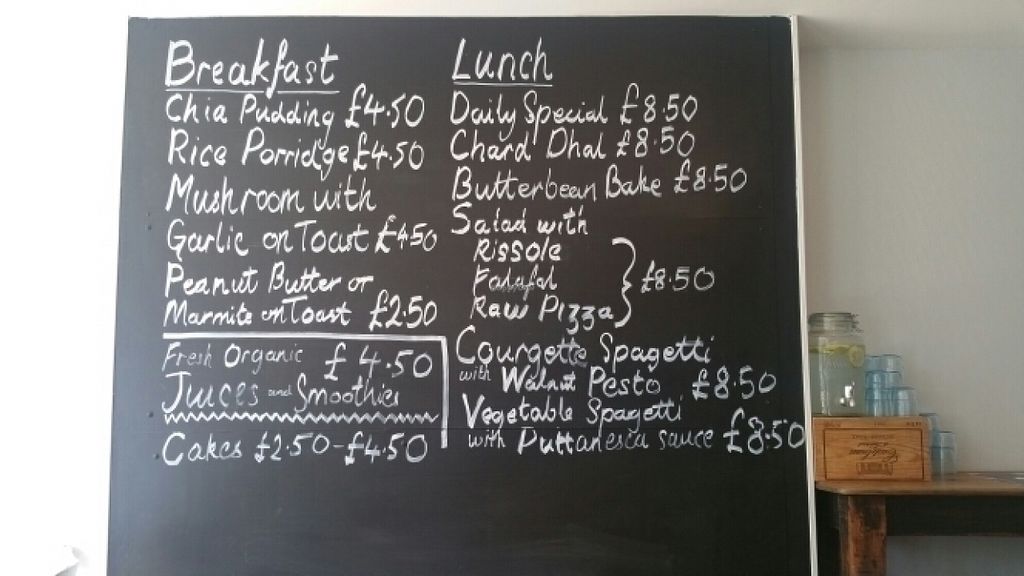 Breakfast
Chia Pudding £4.50
Rice Porridge £4.50
Mushroom with
Garlic on Toast £4.50
Peanut Butter or
Marmite on Toast £2.50
Fresh Organic £4.50
Juices and Smoothies
Cakes £2.50-£4.50
Lunch
Daily Special £8.50
Chard Dhal £8.50
Butterbean Bake £8.50
Salad with
Rissole
Falafal
Raw Pizza
£8.50
Courgette Spagetti
with Walnut Pesto £8.50
Vegetable Spagetti
with Puttanesca sauce £8.50